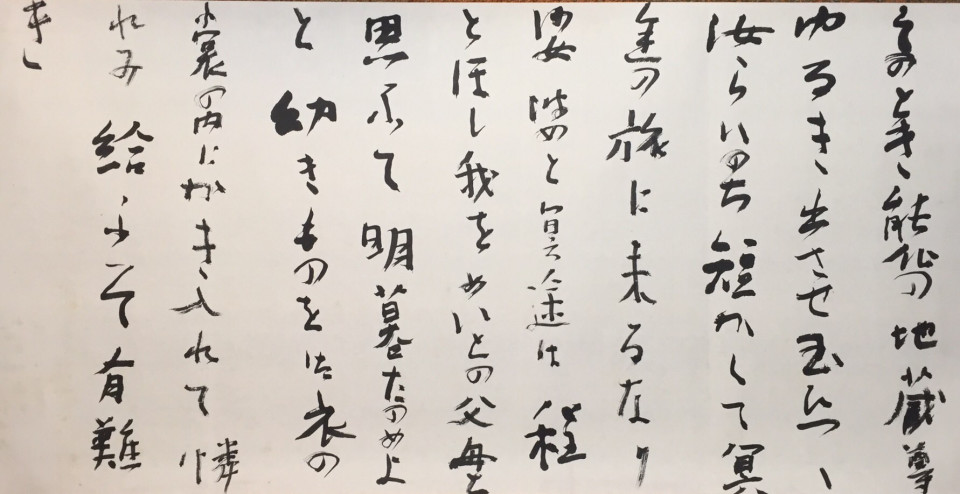 そのとき能化の地蔵尊
ゆるき出させ玉ひつゝ
汝らいのち短かくて冥
途の旅に来るなり
娑婆と冥途は程
とほし我をめいとの父母と
思ふて明暮たのめよ
と幼きものを御衣の
裳の内にかき入れて憐
れみ給ふて有難
き